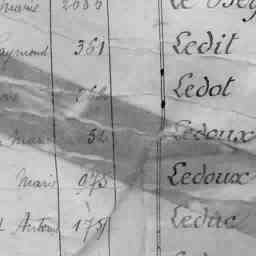 Marie 2086 Le Dey
Raymond 361 Ledit
Ledot
52 Ledoux
Marie 973 Ledoux
Antoine 175 Leduc